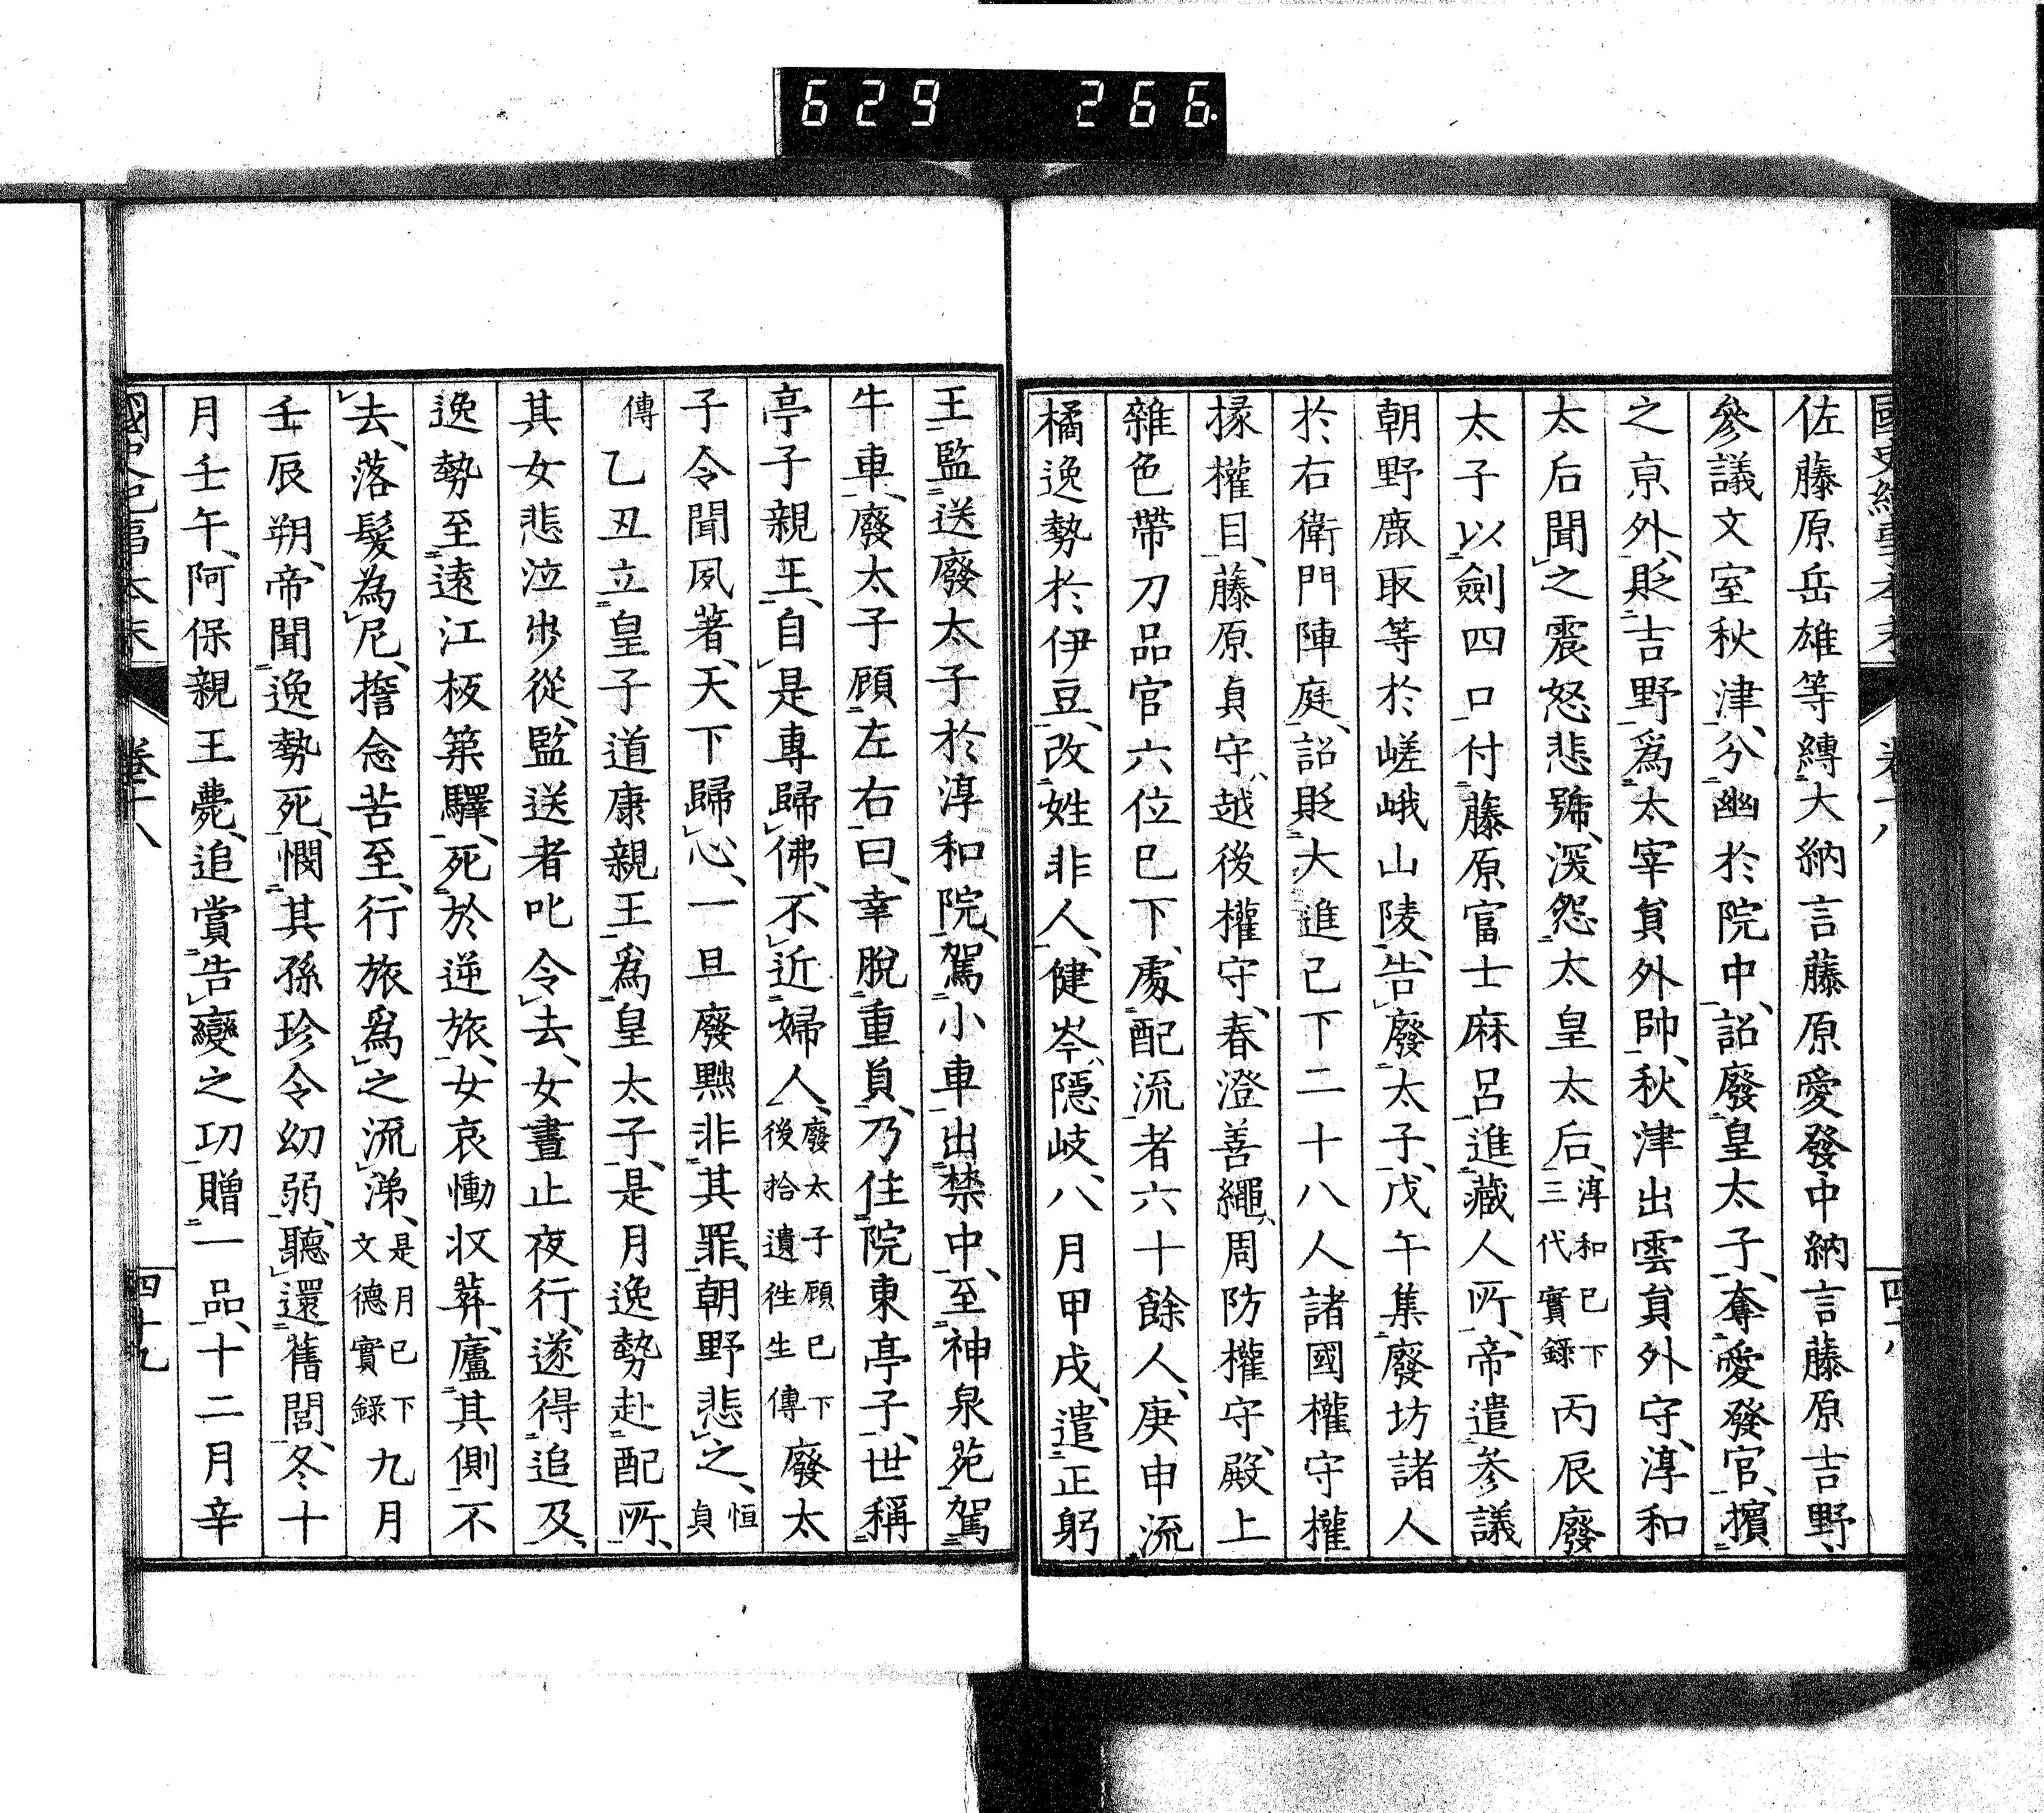 629 266
佐藤原岳雄等縳大納言藤原愛發中納言藤原吉野、
參議文室秋津、分幽於院中、詔廢皇太子、奪愛發官、擯
之京外、貶吉野爲太宰員外帥、秋津出雲員外守、淳和
太后聞之震怒悲號、深怨太皇太后、淳和巳下三代實録丙辰廢
太子以劍四口付藤原富士麻呂進藏人所、帝遣參議
朝野鹿取等於嵯峨山陵、告廢太子、戊午集廢坊諸人
於右衛門陣庭、詔貶大進已下二十八人諸國權守權
掾權目、藤原貞守、越後權守、春澄善繩、周防權守、殿上
雜色帶刀品官六位已下、處配流者六十餘人、庚申流
橘逸勢於伊豆、改姓非人、健岑、隱岐、八月甲戌、遣正躬
王監送廢太子於淳和院、駕小車出禁中、至神泉苑駕
牛車、廢太子顧左右曰、幸脫重負、乃住院東亭子、世稱
亭子親王、自是專歸佛、不近婦人、廢太子顧已下後拾遺徃生傳廢太
子令聞夙著、天下歸心、一旦廢黜非其罪、朝野悲之、恒貞
傳乙丑立皇子道康親王爲皇太子、是月逸勢赴配所、
其女悲泣步從、監送者叱令去、女晝止夜行、遂得追及、
逸勢至遠江板築驛、死於逆旅、女哀慟収葬、廬其側不
去、落髮為尼、擔念苦至、行旅爲之流涕、是月已下文德實録九月
壬辰朔、帝聞逸勢死、憫其孫珍令幼弱、聽還舊閭、冬十
月壬午、阿保親王薨、追賞告變之功、贈一品、十二月辛
卷十八
四十九